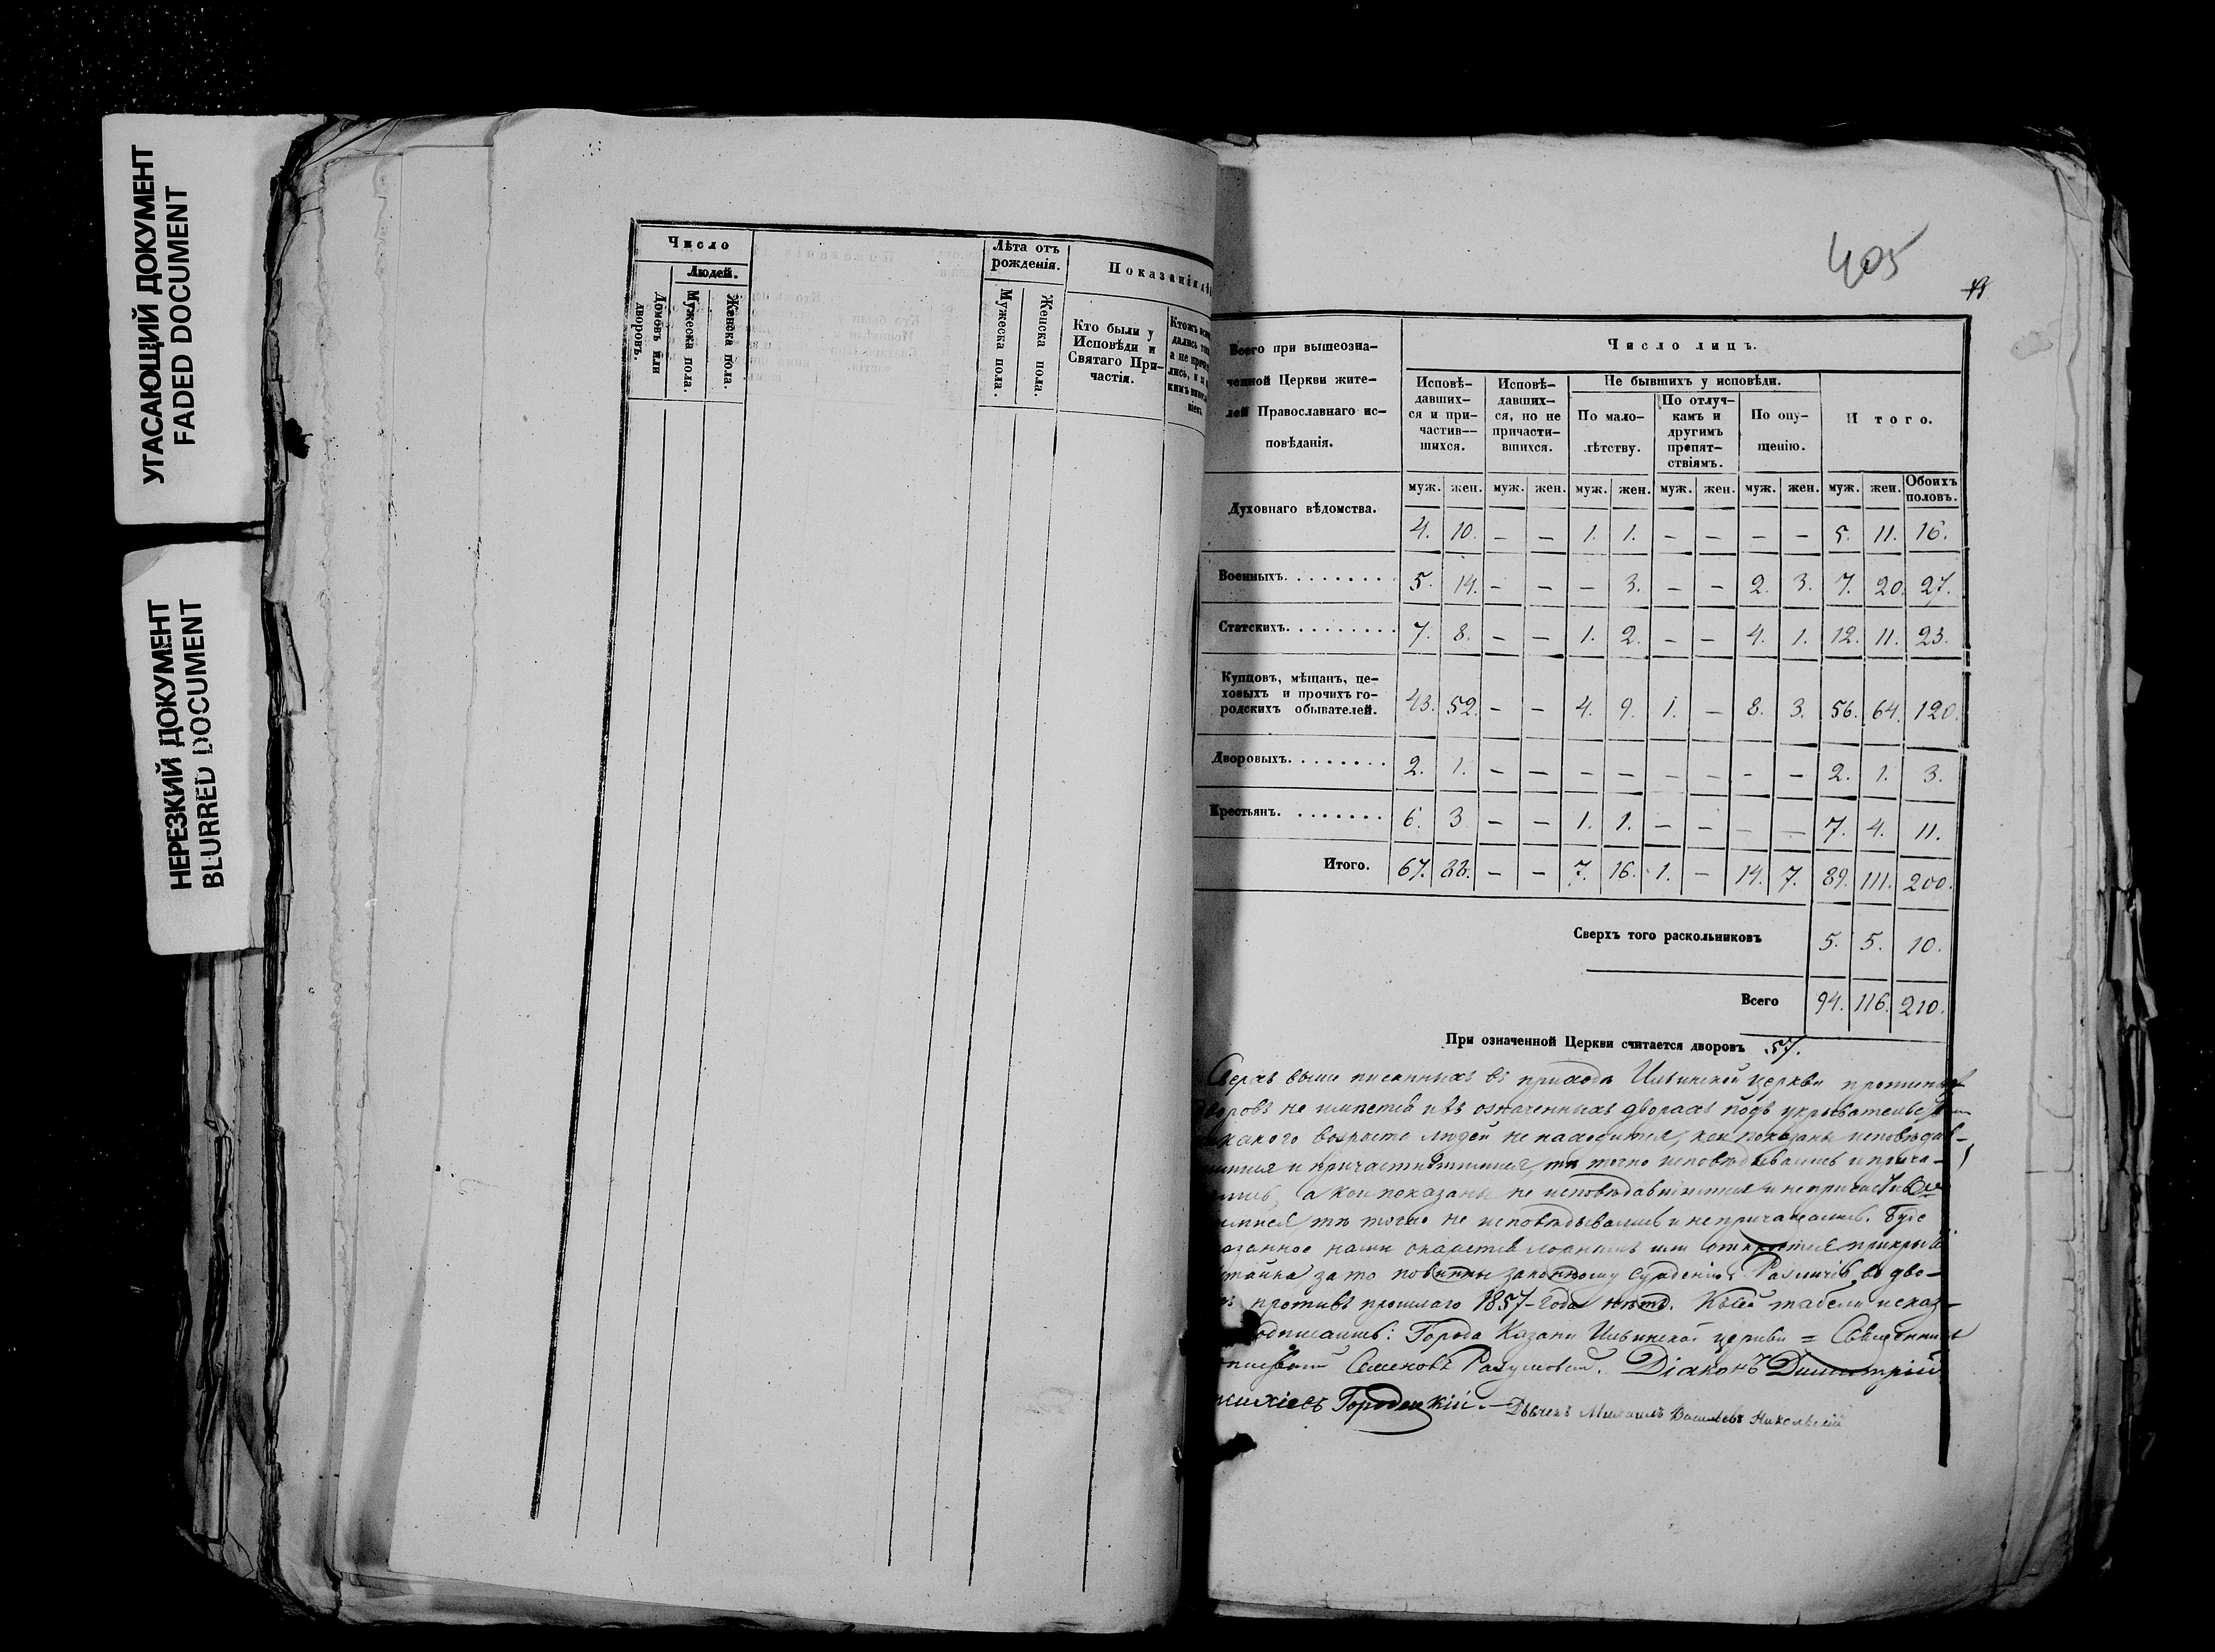 УГАСАЮЩИЙ ДОКУМЕНТ
FADED DOCUMENT
НЕРЕЗКИЙ ДОКУМЕНТ
BLURRED DOCUMENT
Число
Людей.
Домовъ или дворовъ.
Мужеска пола.
Женска пола.
Лѣта отъ
рожденія.
Мужеска пола.
Женска пола.
Показанія
Кто были у
Исповѣди и
Святаго При-
частія.
405
Всего при вышеозна-
ченной Церкви жите-
лей Православнаго ис-
повѣданія.
Число лицъ.
Исповѣ-
давших-
ся и при-
частив-
шихся.
Исповѣ-
давших-
ся, но не
причасти-
вшихся.
Не бывшихъ у исповѣди.
По мало-
лѣтству.
По отлуч-
камъ и
другимъ
препят-
ствіямъ.
По опу-
щенію.
Итого.
муж. жен. муж. жен. муж. жен. муж. жен. муж. жен. муж. жен. Обоихъ половъ.
Духовнаго вѣдомства. 4. 10. – – 1. 1. – – – – 5. 11. 16.
Военныхъ. 5. 14. – – – 3. – – 2. 3. 7. 20. 27.
Статскихъ. 7. 8. – – 1. 2. – – 4. 1. 12. 11. 23.
Купцовъ, мѣщанъ, це-
ховыхъ и прочихъ го-
родскихъ обывателей. 43. 52. – – 4. 9. 1. – 8. 3. 56. 64. 120.
Дворовыхъ. 2. 1. – – – – – – – – 2. 1. 3.
Крестьянъ. 6. 3 – – 1. 1. – – – – 7. 4. 11.
Итого. 67. 88. – – 7. 16. 1. – 14. 7. 89. 111. 200.
Сверхъ того раскольниковъ 5. 5. 10.
Всего 94. 116. 210.
При означенной Церкви считается дворовъ 57.
Сверхъ выше писанныхъ въ приходѣ Ильинской церкви
дворовъ не имѣется и въ означенныхъ дворахъ подъ
какого возраста людей не находится, кои показаны исповѣдав-
шимися и причастившимися, тѣ точно исповѣдывались и прича-
а кои показаны не исповѣдавшимися и не
тѣ точно не исповѣдывались и не причащались. Буде
нами окажется ложнымъ или откроется
за то повинны законному сужденію. Различія въ дво-
противъ прошлаго 1857-года нѣтъ. Къ сей табели
подписались: Города Казани Ильинской церкви = Священникъ
Семеновъ Разумовскій. Діаконъ Димитрій
Городецкій. – Дьячекъ Михаилъ Васильевъ Никольскій